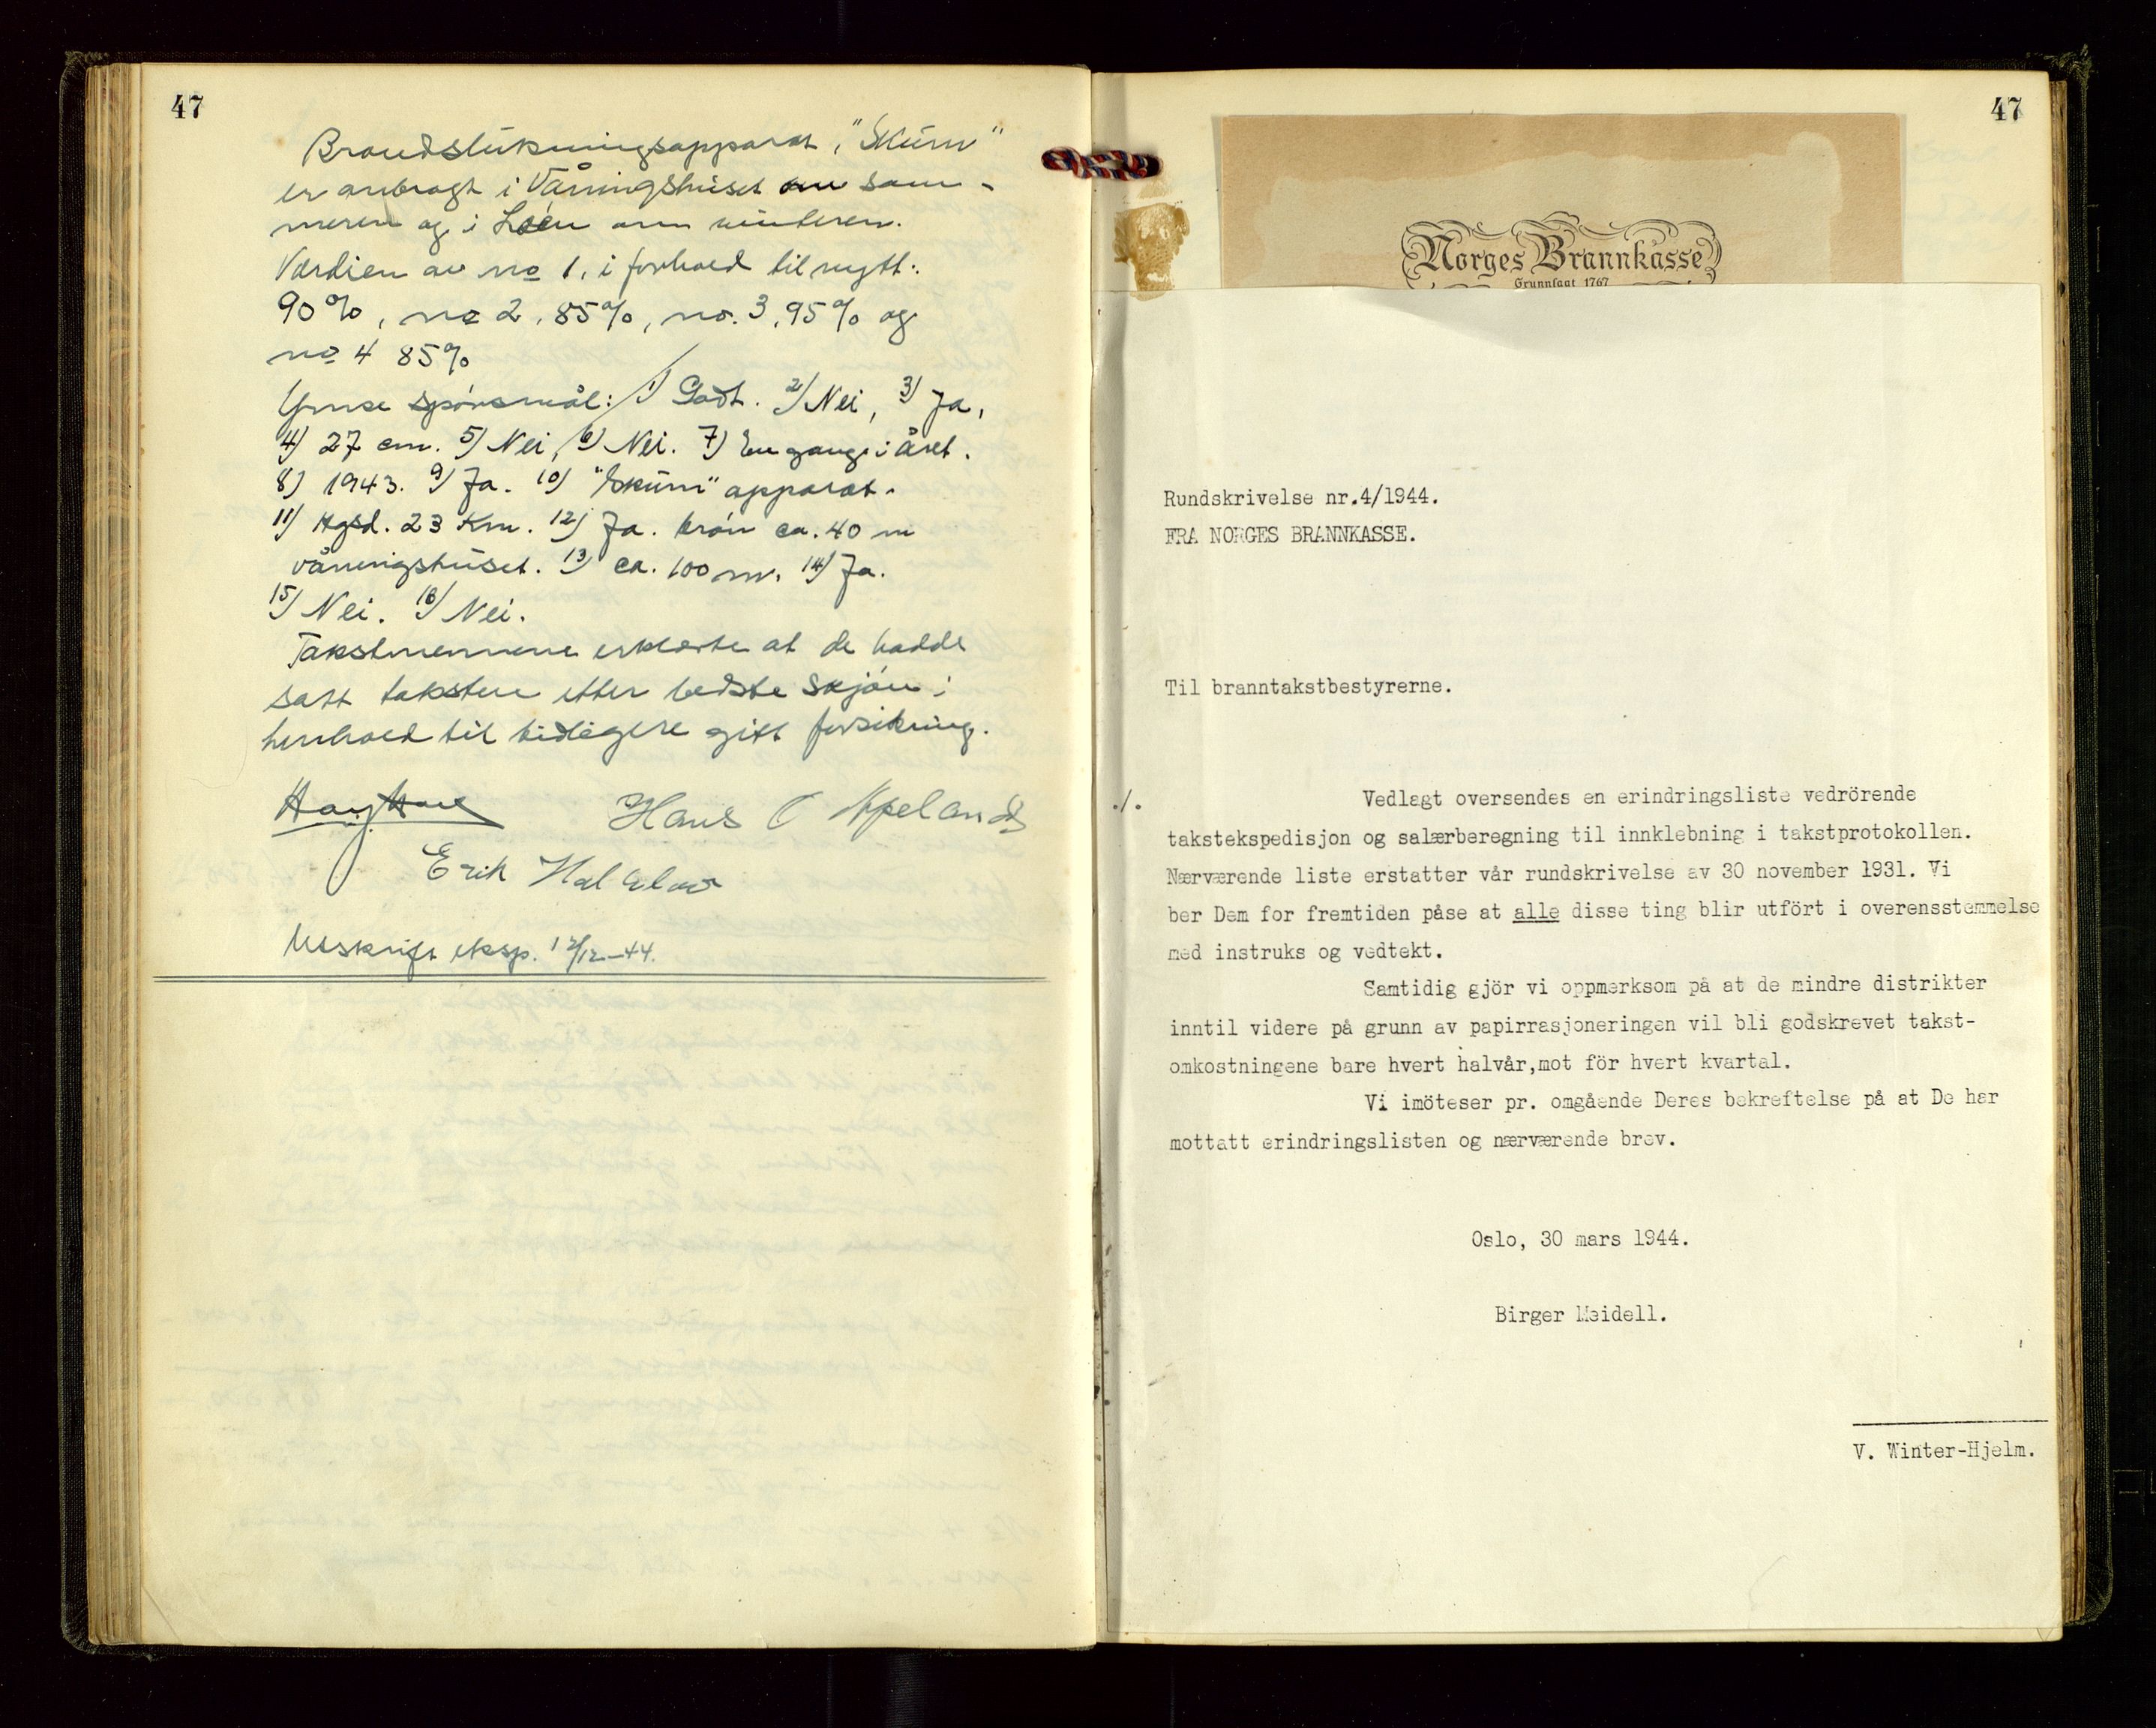 47
Brandslukningsapparat, "Skum"
er anbragt i Våningshuset om som-
meren og i Loen om vinteren.
Verdien av no 1, i forhold til nytt:
90%, no 2, 85%, no. 3, 95% og
no 4 85%
Ymse spörsmål: 1) Godt. 2) Nei, 3) Ja,
4) 27 cm. 5) Nei, 6) Nei. 7) En gang i året.
8) 1943. 9) Ja. 10) "Skum" apparat.
11) Hgsd. 23 Km. 12) Ja. brön ca. 40 m
våningshuset. 13) ca. 100 m. 14) Ja.
15) Nei. 16) Nei.
Takstmennene erklærte at de hadde
satt taksten etter bedste skjön i
henhold til tidligere gitt forsikring.
Hans O Apeland
Erik
Utskrift eksp. 12/12-44.
47
Norges Brannkasse
Grunnlagt 1767
Rundskrivelse nr.4/1944.
FRA NORGES BRANNKASSE.
Til branntakstbestyrerne.
./.
Vedlagt oversendes en erindringsliste vedrörende
takstekspedisjon og salærberegning til innklebning i takstprotokollen.
Nærværende liste erstatter vår rundskrivelse av 30 november 1931. Vi
ber Dem for fremtiden påse at alle disse ting blir utfört i overensstemmelse
med instruks og vedtekt.
Samtidig gjör vi oppmerksom på at de mindre distrikter
inntil videre på grunn av papirrasjoneringen vil bli godskrevet takst-
omkostningene bare hvert halvår,mot för hvert kvartal.
Vi imöteser pr. omgående Deres bekreftelse på at De har
mottatt erindringslisten og nærværende brev.
Oslo, 30 mars 1944.
Birger Meidell.
V. Winter-Hjelm.